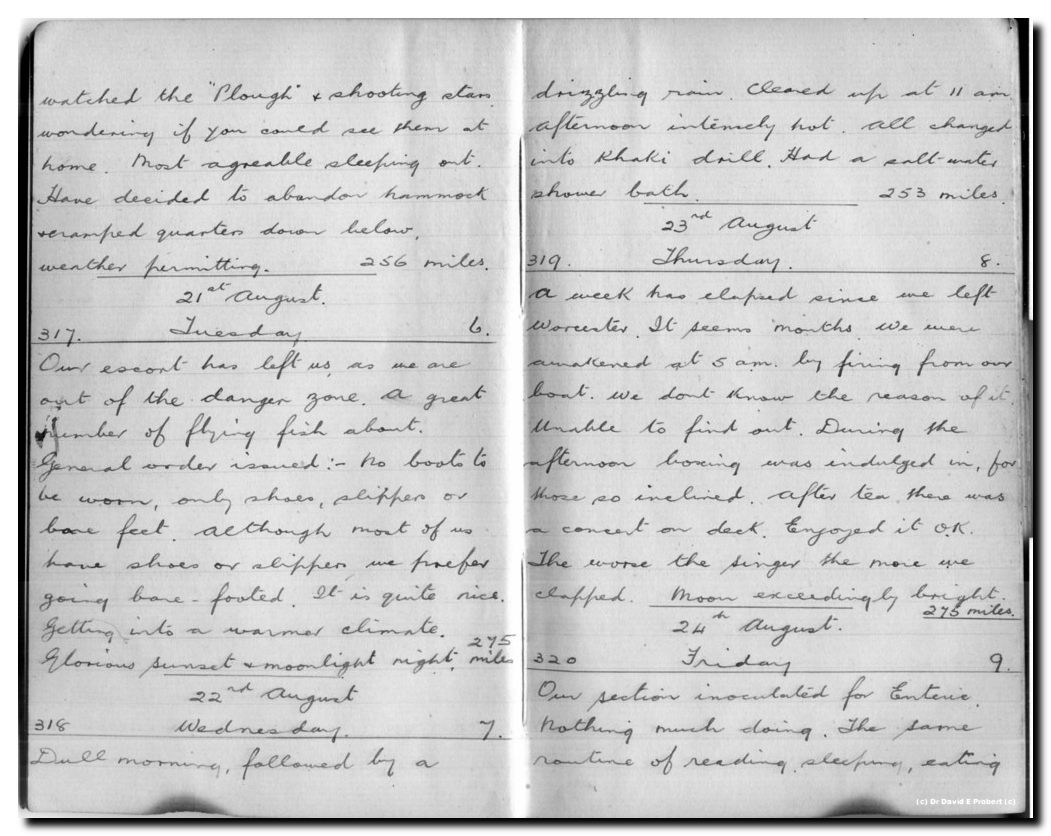 watched the "Plough" & shooting stars
wondering if you could see them at
home. Most agreable sleeping out.
Have decided to abandon hammock
& cramped quarters down below,
weather permitting. 256 miles.
21st August.
317. Tuesday 6.
Our escort has left us, as we are
out of the danger zone. A great
number of flying fish about.
General order issued:- No boots to
be worn, only shoes, slippers or
bare feet. Although most of us
have shoes or slippers, we prefer
going bare-footed. It is quite nice.
Getting into a warmer climate.
Glorious sunset & moonlight night. 275 miles
22nd August
318 Wednesday. 7.
Dull morning, followed by a
drizzling rain. Cleared up at 11 am.
Afternoon intensely hot. All changed
into Khaki drill. Had a salt-water
shower bath. 253 miles.
23rd August
319. Thursday. 8.
A week has elapsed since we left
Worcester. It seems months. We were
awakened at 5 am. by firing from our
boat. We dont know the reason of it.
Unable to find out. During the
afternoon boxing was indulged in, for
those so inclined. After tea there was
a concert on deck. Enjoyed it O.K.
The worse the singer the more we
clapped. Moon exceedingly bright.
275 miles.
24th August.
320 Friday 9.
Our section inoculated for Enteric.
Nothing much doing. The same
routine of reading, sleeping, eating
(c) Dr David E Probert (c)